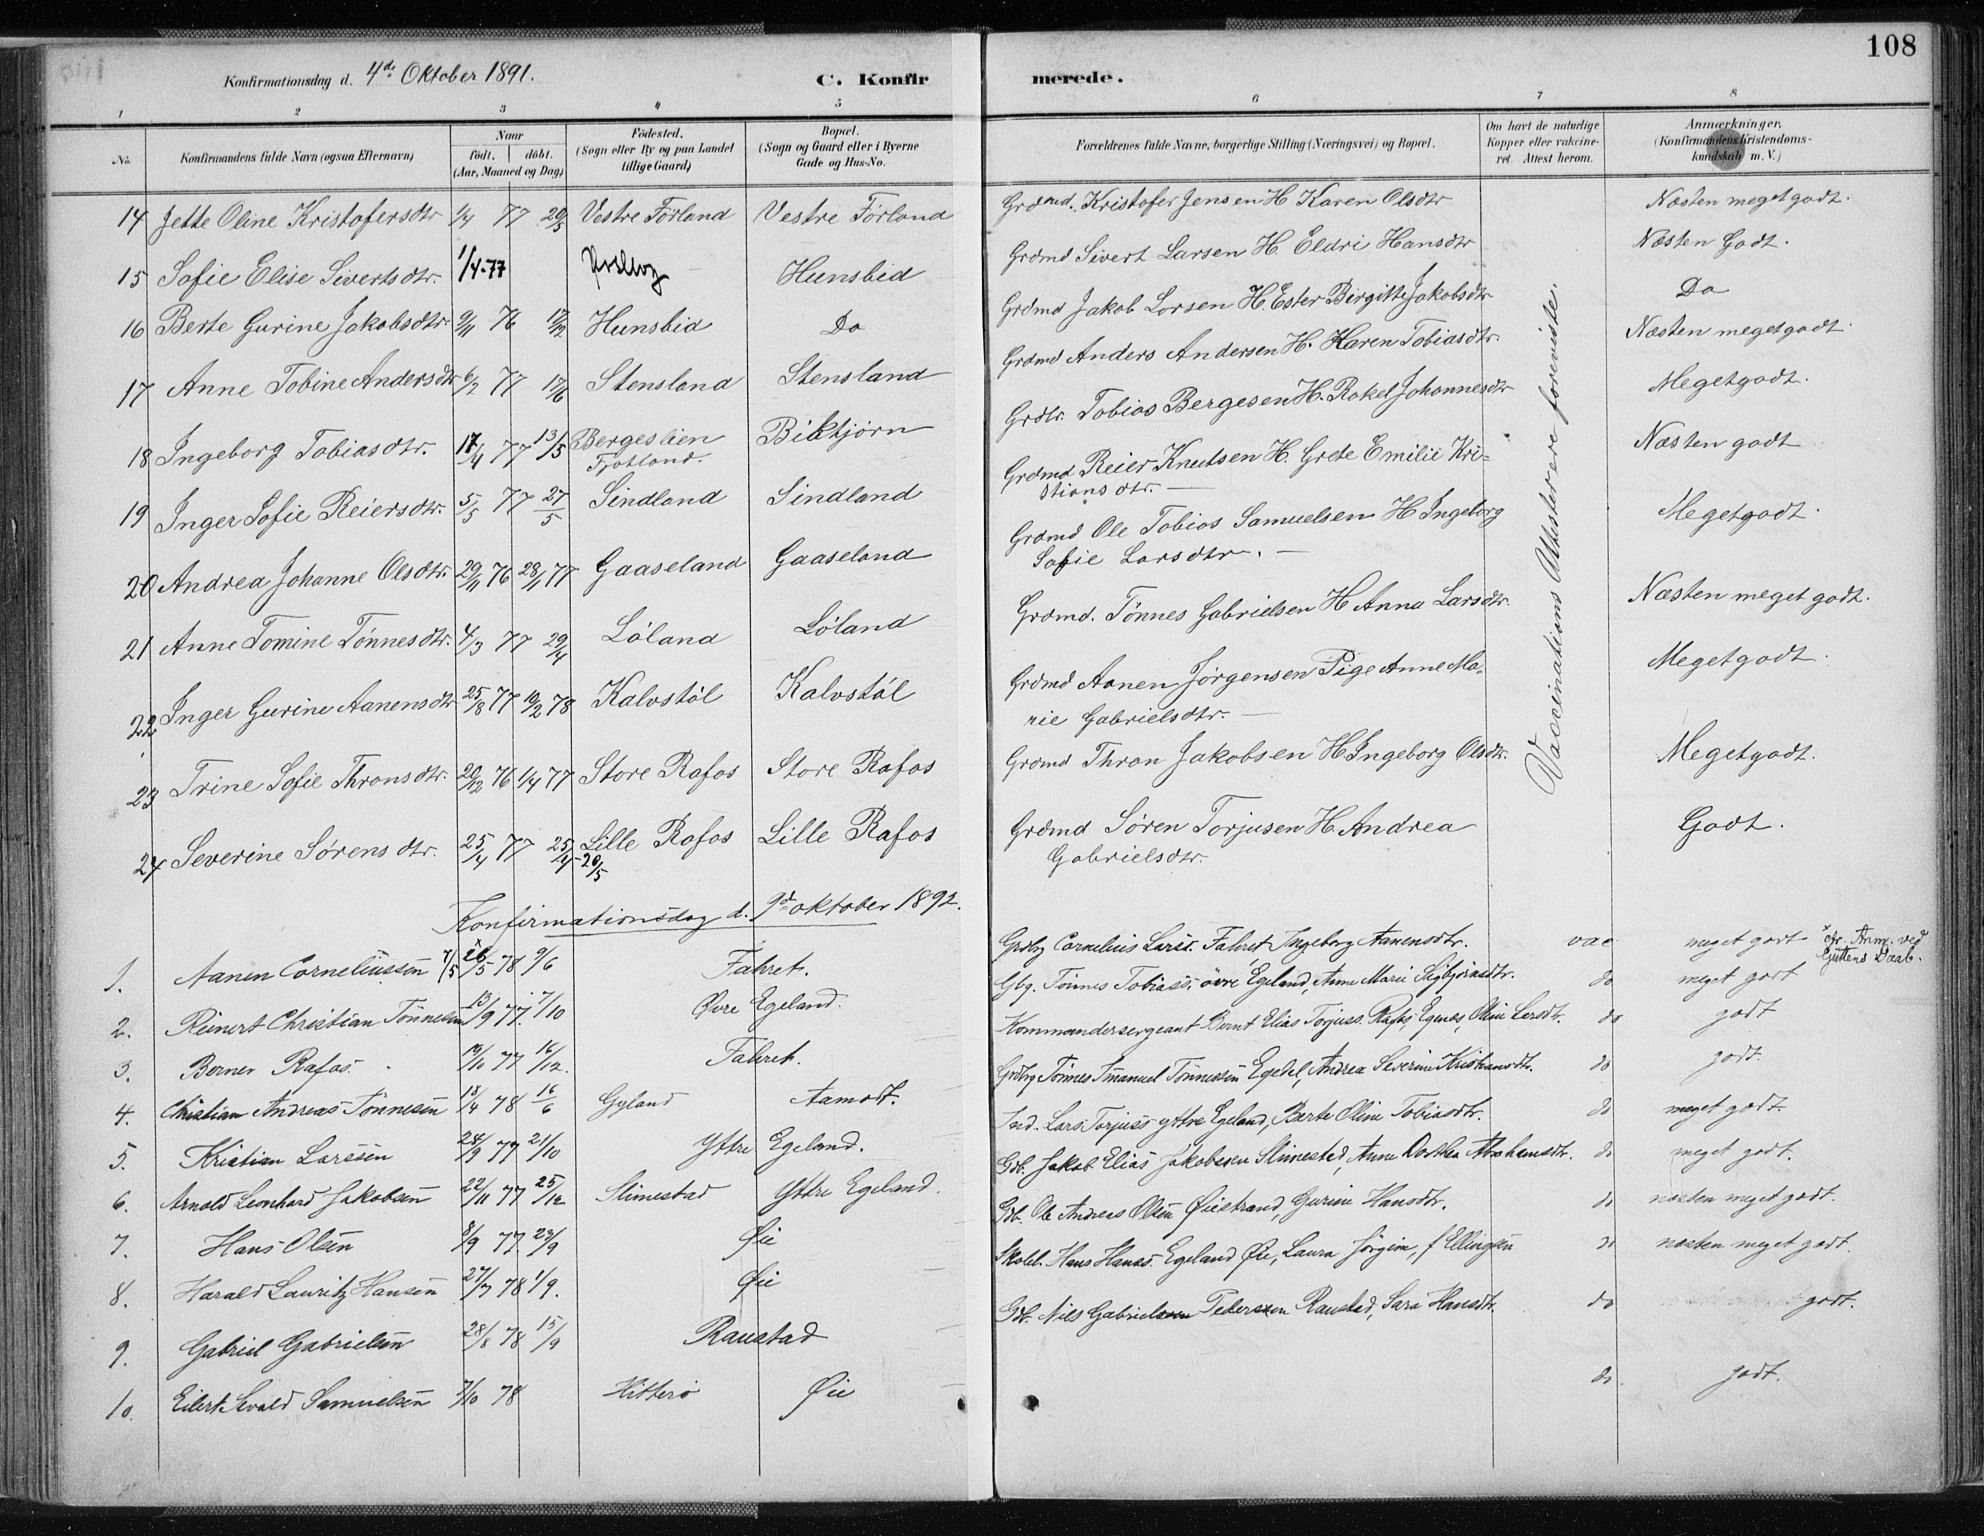 108
Konfirmationsdag d. 4de Oktober 1891.
C. Konfirmerede.
1 2 3 4 5 6 7 8
No. Konfirmandens fulde Navn (ogsaa Efternavn) Naar født. døbt. (Aar, Maaned og Dag) Fødested. (Sogn eller By og paa Landet tillige Gaard) Bopæl. (Sogn og Gaard eller i Byerne Gade og Hus-No. Forældrenes fulde Navne, borgerlige Stilling (Næringsvei) og Bopæl. Om havt de naturlige Kopper eller vakcineret. Attest herom. Anmærkninger. (Konfirmandens Kristendomskundskab m. V.)
14 Jette Oline Kristofersdtr 1/4 77 20/5 Vestre Førland Vestre Førland Grdmd. Kristofer Jensen H Karen Olsdtr Næsten meget godt.
15 Sofie Elise Sivertsdtr. 1/4-77 Hunsbid Grdmd Sivert Larsen H. Eldri Hansdtr Næsten Godt.
16 Berte Gurine Jakobsdtr. 9/11 76 17/12 Hunsbid Do Grdmd Jakob Larsen H. Ester Birgitte Jakobsdtr Do
17 Anne Tobine Andersdtr 6/2 77 17/6 Stensland Stensland Grdmd Anders Andersen H. Karen Tobiasdtr. Næsten megetgodt.
18 Ingeborg Tobiasdtr. 17/4 77 13/5 Bergeslien Fjotland. Birkjørn Grdbr. Tobias Bergesen H. Rakel Johannesdtr Megetgodt.
19 Inger Sofie Reiersdtr. 5/5 77 27/5 Sindland Sindland Grdmd Reier Knutsen H. Grete Emilie Kristiansdtr. Næsten godt
20 Andrea Johanne Olsdtr. 29/11 76 28/1 77 Gaaseland Gaaseland Grdmd Ole Tobias Samuelsen H Ingeborg Sofie Larsdtr. Megetgodt.
21 Anne Tomine Tønnesdtr. 4/3 77 29/4 Løland Løland Grdmd. Tønnes Gabrielsen H Anna Larsdtr. Næsten meget godt.
22 Inger Gurine Aanensdtr 25/8 77 10/2 78 Kalvstøl Kalvstøl Grdmd Aanen Jørgensen Pige Anne Marie Gabrielsdtr. Megetgodt.
23 Trine Sofie Thronsdtr. 20/12 76 1/4 77 Store Rafos Store Rafos Grdmd Thron Jakobsen H Ingeborg Olsdtr. Megetgodt.
24 Severine Sørensdtr. 25/4 77 25/4 20/5 Lille Rafos Lille Rafos Grdmd Søren Torjusen H. Andrea Gabrielsdtr. Godt.
Vaccinations Attester forevisste.
Konfirmationsdag d. 9de oktober 1892.
1. Aanen Corneliussen 7/5 26/5 78 9/6 Fahret. Grdbg Cornelius Larss. Fahret, Ingeborg Aanensdtr. vac meget godt x cfr. Anm. ved Guttens Daab.
2. Reinert Christian Tønnesen 13/9 77. 7/10 Øvre Egeland. Gbg. Tønnes Tobiass. øvre Egeland, Anne Marie Sigbjørnsdtr. do meget godt
3. Berner Rafos. 19/10 77 16/12. Fahret. Kommandersergeant Bernt Elias Torjuss. Rafos, Egenes, Oline Larsdtr. do godt
4. Christian Andreas Tønnesen 18/4 78 16/6 Gyland Aamodt. Grdbg Tønnes Emanuel Tønnessen Egedel, Andrea Severine Kristiansdtr. do godt.
5. Kristian Larssen 28/9 77 21/10 Yttre Egeland. Ind. Lars Torjuss yttre Egeland, Berte Oline Tobiasdtr. do meget godt.
6. Arnold Leonhard Jakobsen 22/11 77 25/12 Slimestad Yttre Egeland. Gdb. Jakob Elias Jakobsen Slimestad, Anne Dorthea Abrahamsdtr. do meget godt.
7. Hans Olsen 8/9 77 23/9 Øie Gdb. Ole Andreas Olsen Øiestrand, Gurine Hansdtr. do næsten meget godt.
8. Harald Lauritz Hansen 27/7 78 1/9. Øie Skolel. Hans Hanss. Egeland Øie, Laura Jørgine, f Ellingsen do næsten meget godt.
9. Gabriel Gabrielsen 28/8 78 15/9 Raustad Gdb. Nils Gabrielsen Pedersen Raustad, Sara Hansdtr. do godt.
10. Eilert Sevald Samuelsen 7/10 78 Hitterø Øie do. godt.